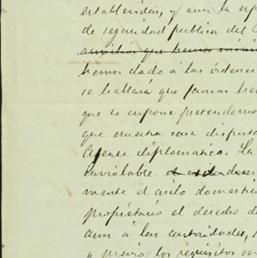 establecidas, y aun la
de seguridad publica del
auxilios que hemos
hemos dado á las órdenes
se hallará que jamas he
que se supone pretendemos
que nuestra casa disputa
Agente diplomatico. La
inviolable
mente el asilo domestico
propietario el derecho de
aun á las autoridades,
y previo los requisitos